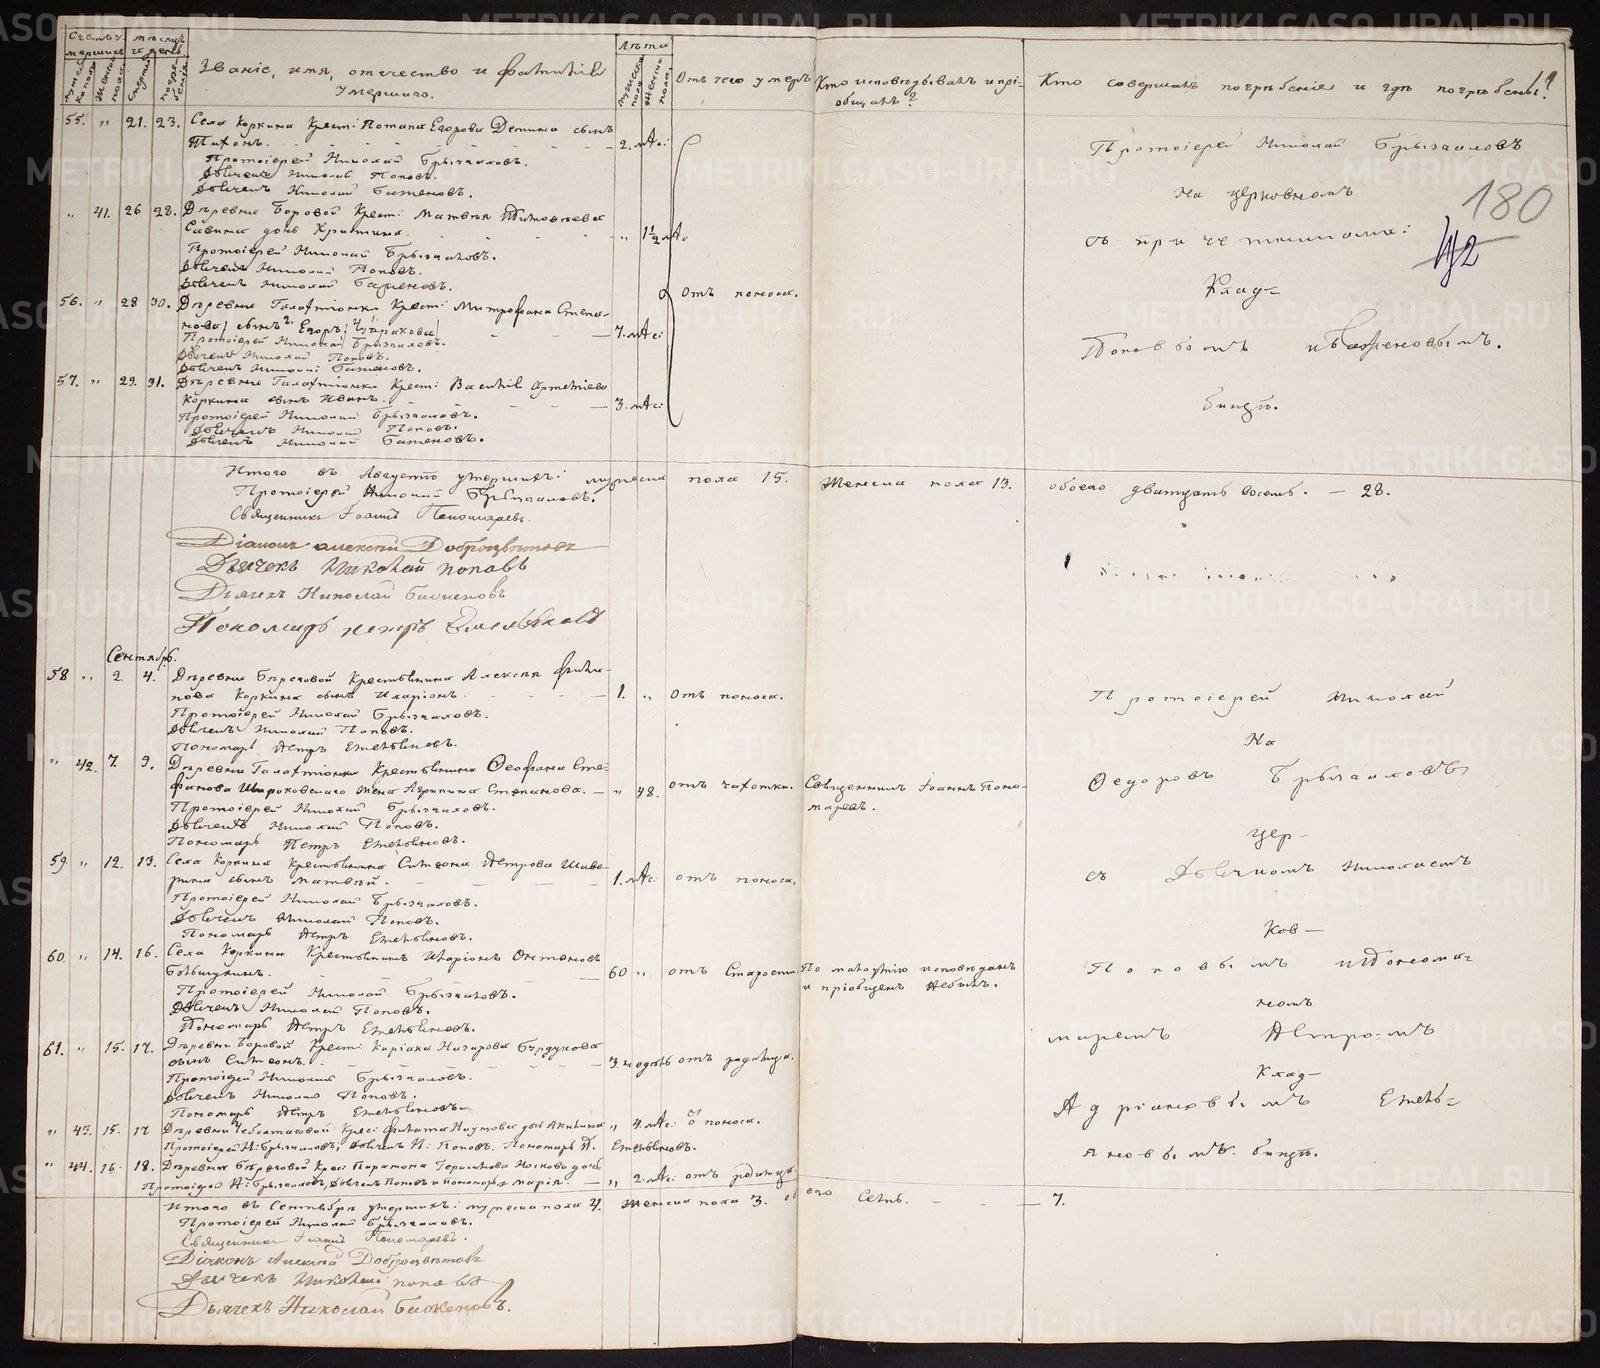 Счетъ умершихъ
мѣсяцъ и день
Звание, имя, отечество и фамилія
умершаго.
Лѣта
Отъ чего умеръ
Кто исповѣдывалъ и прі-
общалъ?
Кто совершалъ погребеніе и гдѣ погребены?
180
55. „ 21. 23. Села Коркина Крест: Потапа Егорова Демина сынъ
Тихонъ. 2. мѣс:
Протоіерей Николай Брызгаловъ.
Дьячекъ Николай Поповъ.
Дьячекъ Николай Баженовъ.
„ 41. 26 28. Деревни Боровой Крест: Матвѣя
Савина дочь Христина. „ 1½ мѣс
Протоіерей Николай Брызгаловъ.
Дьячекъ Николай Поповъ.
Дьячекъ Николай Баженовъ.
56. „ 28 30. Деревни Галактіонки Крест: Митрофана Степа-
нова сынъ Егоръ 7. мѣс:
Протоіерей Николай Брызгаловъ.
Дьячекъ Николай Поповъ.
Дьячекъ Николай Баженовъ.
57. „ 29. 31. Деревни Галактіонки Крест: Василія Артемиева
Коркина сынъ Иванъ. 3. мѣс:
Протоіерей Николай Брызгаловъ.
Дьячекъ Николай Поповъ.
Дьячекъ Николай Баженовъ.
Отъ поноса.
Протоіерей Николай Брызгаловъ
На церковномъ
съ причетниками:
Клад-
Поповымъ и Баженовымъ.
бищѣ.
Итого въ Августѣ умершихъ: мужеска пола 15. Женска пола 13. обоего дватцать восемь. — 28.
Протоіерей Николай Брызгаловъ.
Священникъ Іоаннъ Пономаревъ.
Діаконъ Алексѣй Доброцвѣтовъ
Дьячекъ Николай Поповъ
Дьячекъ Николай Баженовъ
Пономарь Петръ
Сентябрь.
58 „ 2. 4. Деревни Береговой Крестьянина Алексѣя Фили-
пова Коркина сынъ Иларіонъ. 1. „ Отъ поноса.
Протоіерей Николай Брызгаловъ.
Дьячекъ Николай Поповъ.
Пономарь Петръ Емельяновъ.
„ 42. 7. 9. Деревни Галактіонки Крестьянина Ѳеофана Сте-
фанова Широковскаго жена Агрипина Степанова. „ 48. отъ чахотки. Священникъ Іоаннъ Поно-
маревъ.
Протоіерей Николай Брызгаловъ.
Дьячекъ Николай Поповъ.
Пономарь Петръ Емельяновъ.
59 „ 12. 13. Села Коркина Крестьянина Симеона Петрова
сынъ Матвѣй. 1. мѣс: отъ поноса.
Протоіерей Николай Брызгаловъ.
Дьячекъ Николай Поповъ.
Пономарь Петръ Емельяновъ.
60. „ 14. 16. Села Коркина Крестьянинъ Иларіонъ
60 „ отъ Старости По исповѣданъ
и пріобщенъ небылъ.
Протоіерей Николай Брызгаловъ.
Дьячекъ Николай Поповъ.
Пономарь Петръ Емельяновъ.
61. „ 15. 17. Деревни Боровой Крест: Киріака Назарова
сынъ Симеонъ. 3. недѣль отъ родимца.
Протоіерей Николай Брызгаловъ.
Дьячекъ Николай Поповъ.
Пономарь Петръ Емельяновъ.
„ 43. 15. 17 Деревни Крес: Филата Наумова дочь Акилина „ 4. мѣс: о поноса.
Протоіерей Н: Брызгаловъ, Дьячекъ Н: Поповъ. Пономарь П. Емельяновъ.
„ 44. 16. 18. Деревни Береговой Крес: Парамона Герасимова Носкова дочь
Марія. „ 2. мѣс: отъ родимца
Протоіерей Н: Брызгаловъ, Дьячекъ Поповъ и Пономарь
Протоіерей Николай
На
Ѳедоровъ Брызгаловъ
цер-
съ Дьячкомъ Николаемъ
ков-
Поповымъ и Поно-
номъ
маремъ Петромъ
клад-
Адріановымъ Емель-
яновымъ. бищѣ.
Итого въ Сентябрѣ умершихъ: мужеска пола 4. женска пола 3. обоего Семь. — 7.
Протоіерей Николай Брызгаловъ.
Священникъ Іоаннъ Пономаревъ.
Діаконъ Алексѣй Доброцвѣтовъ
Дьячекъ Николай Поповъ
Дьячекъ Николай Баженовъ.
METRIKI.GASO-URAL.RU